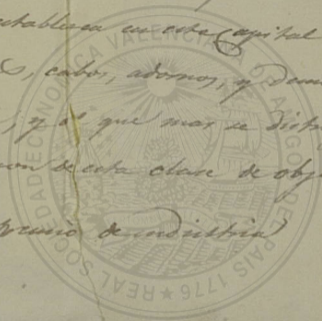 establezca en esta Capital
s, cabos, adornos, y dema
, y al que mas se distin
cion de esta clase de obje
premio de industria
REAL SOCIEDAD ECONOMICA VALENCIANA DE AMIGOS DEL PAIS 1776